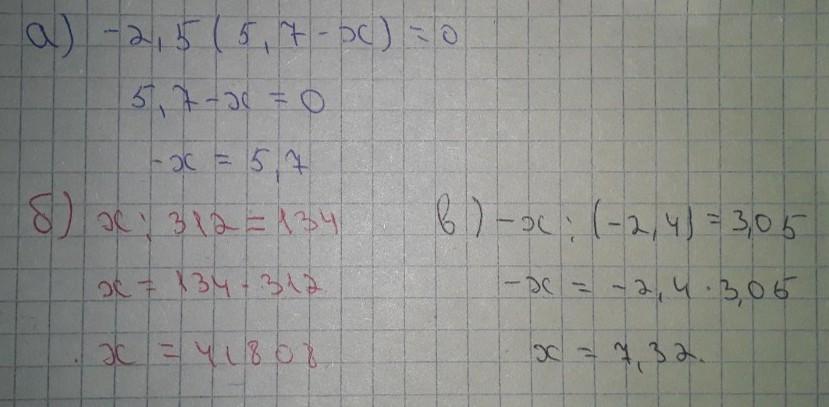 а) -2,5(5,7-x)=0
5,7-x=0
-x=5,7
б) x:312=134
x=134·312
x=41808
в) -x:(-2,4)=3,05
-x=-2,4·3,05
x=7,32.